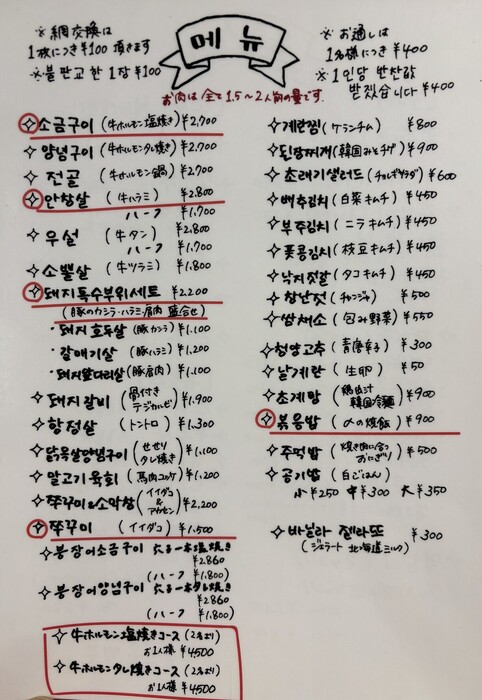 ※網交換は
1枚につき¥100 頂きます
※불판교환 1장 ¥100
메뉴
※お通しは
1名様につき ¥400
※1인당 반찬값
받겠습니다 ¥400
お肉は全て1.5〜2人前の量です.
✧소금구이 (牛ホルモン塩焼き) ¥2,700
✧양념구이 (牛ホルモンタレ焼き) ¥2,700
✧전골 (牛ホルモン鍋) ¥2,700
✧안창살 (牛ハラミ) ¥2,800
ハーフ ¥1,700
✧우설 (牛タン) ¥2,800
ハーフ ¥1,700
✧소뽈살 (牛ツラミ) ¥1,800
✧돼지특수부위세트 ¥2,200
(豚のカシラ・ハラミ・肩肉 盛合せ)
・돼지호두살 (豚カシラ) ¥1,100
・갈매기살 (豚ハラミ) ¥1,200
・돼지앞다리살 (豚肩肉) ¥1,100
✧돼지갈비 (骨付き デジカルビ) ¥1,900
✧항정살 (トントロ) ¥1,300
✧닭목살양념구이 (せせり タレ焼き) ¥1,100
✧말고기육회 (馬肉ユッケ) ¥1,200
✧쭈꾸미&소막창 (イイダコ & アカセン) ¥2,200
✧쭈꾸미 (イイダコ) ¥1,500
✧붕장어소금구이 穴子一本塩焼き
¥2,860
(ハーフ ¥1,800)
✧붕장어양념구이 穴子一本タレ焼き
¥2,860
(ハーフ ¥1,800)
✧牛ホルモン塩焼きコース (2名より)
お1人様 ¥4,500
✧牛ホルモンタレ焼きコース (2名より)
お1人様 ¥4,500
✧계란찜 (ケランチム) ¥800
✧된장찌개 (韓国みそチゲ) ¥900
✧초레기샐러드 (チョレギサラダ) ¥600
✧배추김치 (白菜キムチ) ¥450
✧부추김치 (ニラキムチ) ¥450
✧풋콩김치 (枝豆キムチ) ¥450
✧낙지젓갈 (タコキムチ) ¥450
✧창난젓 (チャンジャ) ¥500
✧쌈채소 (包み野菜) ¥550
✧청양고추 (青唐辛子) ¥300
✧날계란 (生卵) ¥50
✧초계면 (鶏出汁 韓国冷麺) ¥900
✧볶음밥 (〆の焼飯) ¥900
✧주먹밥 (焼き肉に合う おにぎり) ¥500
✧공기밥 (白ごはん)
小¥250 中¥300 大¥350
✧바닐라 젤라또 ¥300
(ジェラート 北海道ミルク)